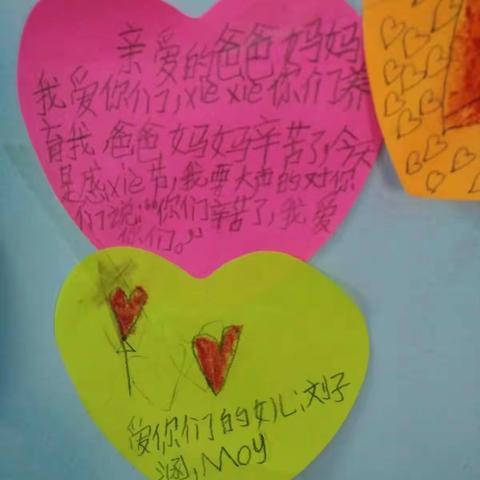 亲爱的爸爸妈妈
我爱你们,xie xie你们养
育我,爸爸妈妈辛苦了,今天
是感xie节,我要大声的对你
们说:“你们辛苦了,我爱
你们。”
爱你们的女儿:刘子
涵,Moy